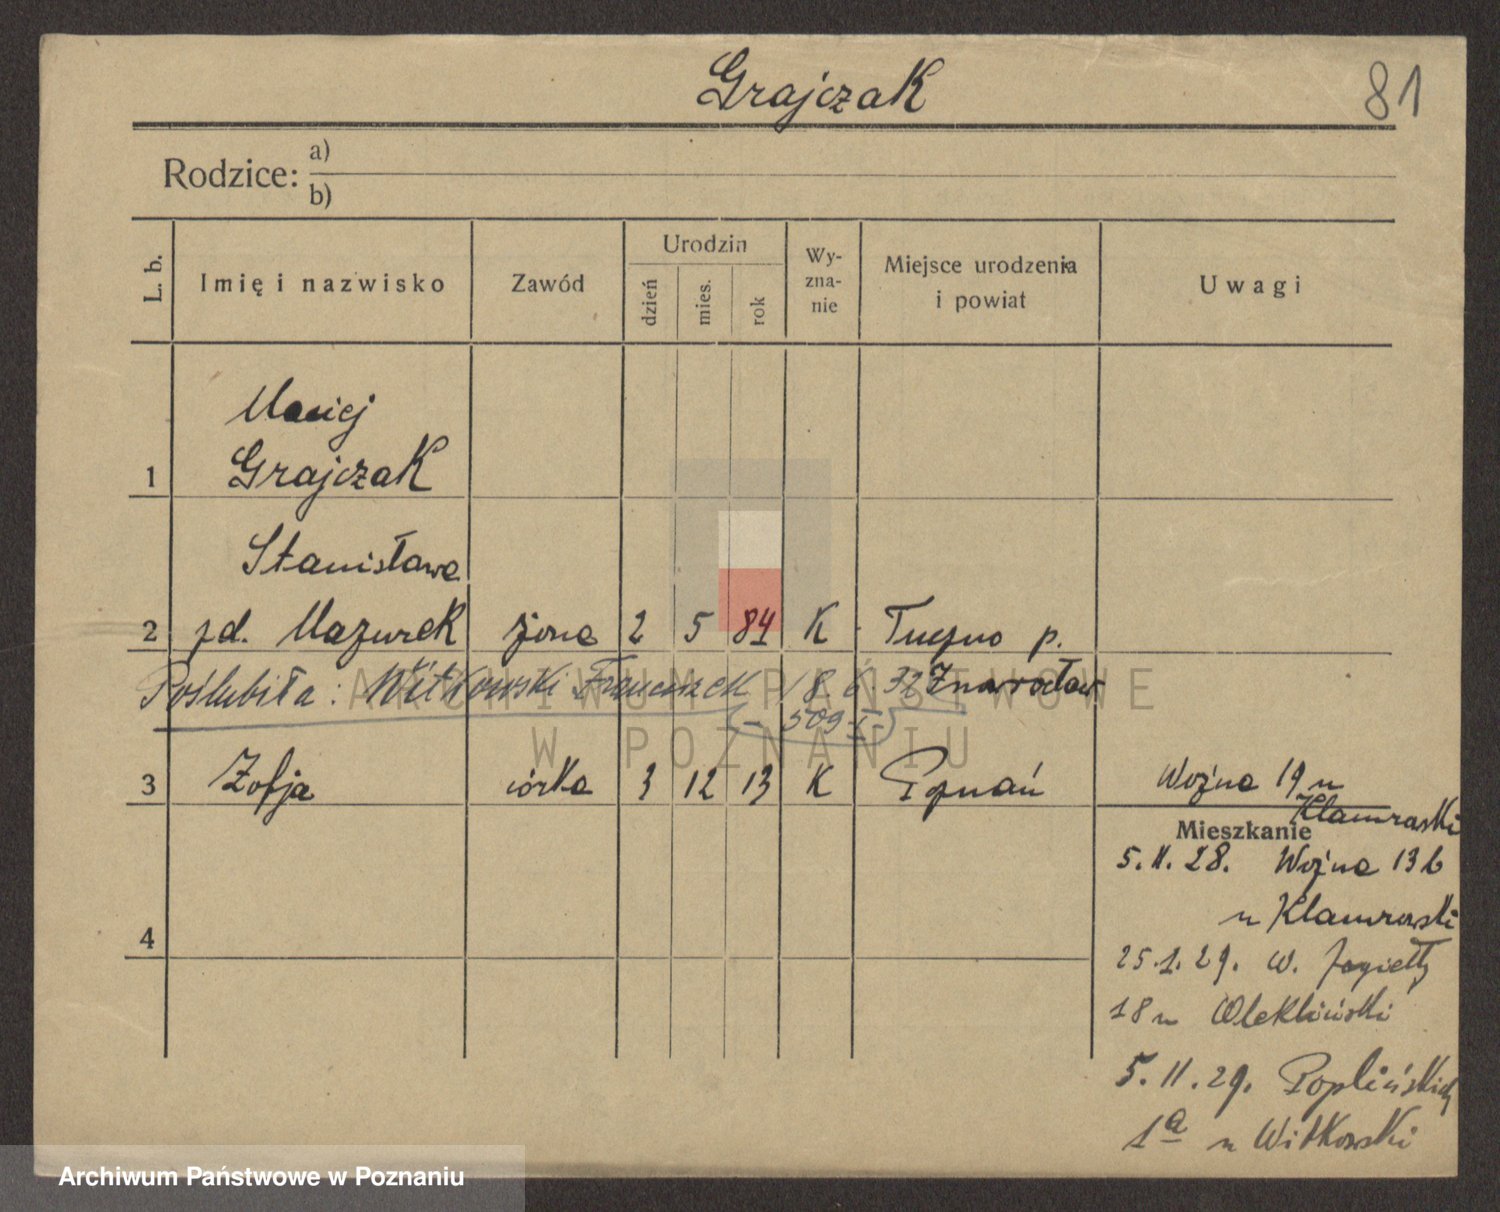 Grajczak
81
Rodzice: a)
b)
L. b.
Imię i nazwisko
Zawód
Urodzin
dzień
mies.
rok
Wy-
zna-
nie
Miejsce urodzenia
i powiat
Uwagi
Maciej
1 Grajczak
Stanisława
2 zd. Mazurek żona 2 5 84 K Tuczno p.
Poślubiła: Witkowski Franciszek 18. 6. 32 Inowrocław
– 509
3 Zofja córka 3 12 13 K Poznań Woźna 19 u
Klamrowski
Mieszkanie
5. 11. 28. Woźna 13b
u Klamrowski
4
25. 1. 29. W. Jagiełły
18 u
5. 11. 29. Poplińskich
1a u Witkowski
ARCHIWUM PAŃSTWOWE
W POZNANIU
Archiwum Państwowe w Poznaniu